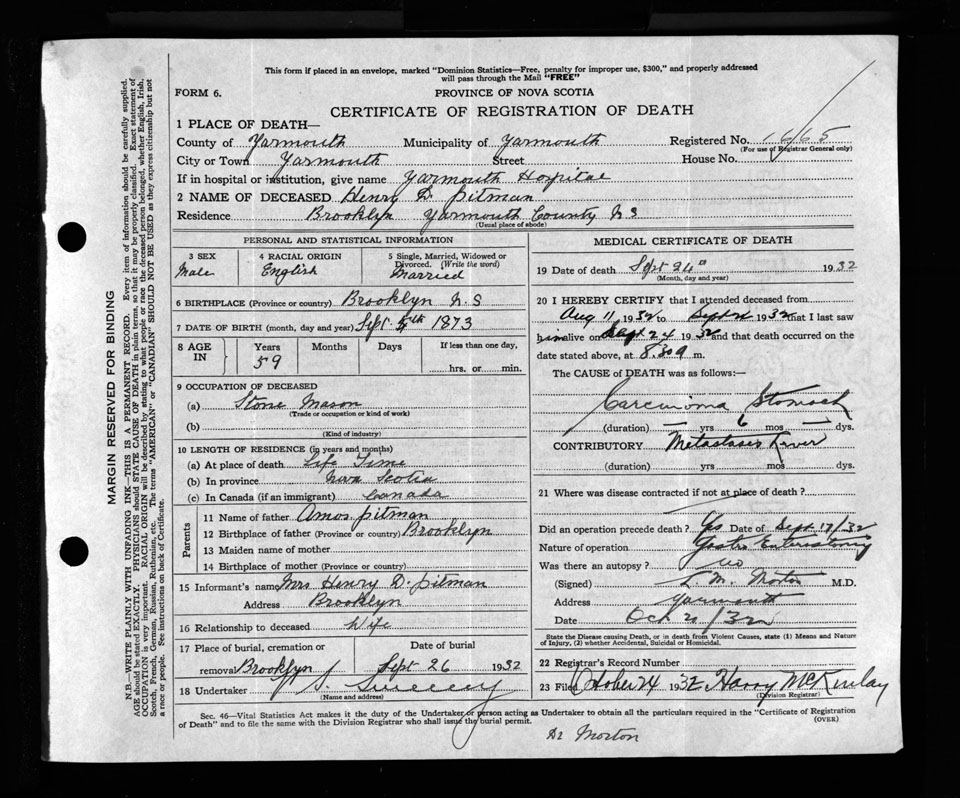 This form if placed in an envelope, marked "Dominion Statistics—Free, penalty for improper use, $300," and properly addressed
will pass through the Mail "FREE"
FORM 6.
PROVINCE OF NOVA SCOTIA
CERTIFICATE OF REGISTRATION OF DEATH
1 PLACE OF DEATH—
County of Yarmouth Municipality of Yarmouth Registered No. 1665
(For use of Registrar General only)
City or Town Yarmouth Street House No.
If in hospital or institution, give name Yarmouth Hospital
2 NAME OF DECEASED Henry D. Pitman
Residence Brooklyn Yarmouth County N S
(Usual place of abode)
PERSONAL AND STATISTICAL INFORMATION
3 SEX 4 RACIAL ORIGIN 5 Single, Married, Widowed or
Divorced. (Write the word)
Male English Married
6 BIRTHPLACE (Province or country) Brooklyn N. S
7 DATE OF BIRTH (month, day and year) Sept 1873
8 AGE IN Years Months Days If less than one day,
59 hrs. or min.
9 OCCUPATION OF DECEASED
(a) Stone Mason
(Trade or occupation or kind of work)
(b)
(Kind of industry)
10 LENGTH OF RESIDENCE (in years and months)
(a) At place of death Life Time
(b) In province Nova Scotia
(c) In Canada (if an immigrant) Canada
Parents
11 Name of father Amos Pitman
12 Birthplace of father (Province or country) Brooklyn
13 Maiden name of mother
14 Birthplace of mother (Province or country)
15 Informant's name Mrs Henry D. Pitman
Address Brooklyn
16 Relationship to deceased Wife
17 Place of burial, cremation or Date of burial
removal Brooklyn Sept 26 1932
18 Undertaker Sweeney
(Name and address)
MEDICAL CERTIFICATE OF DEATH
19 Date of death Sept 24th 1932
(Month, day and year)
20 I HEREBY CERTIFY that I attended deceased from
Aug 11 1932 to Sept 24 1932 that I last saw
him alive on Sept 24 1932 and that death occurred on the
date stated above, at m.
The CAUSE of DEATH was as follows:—
Carcinoma Stomach
(duration) — yrs 6 mos — dys.
CONTRIBUTORY Metastases Liver
(duration) yrs mos dys.
21 Where was disease contracted if not at place of death?
Did an operation precede death? Yes Date of Sept 17/32
Nature of operation Gastro Enterostomy
Was there an autopsy? No
(Signed) L. M. Morton M.D.
Address Yarmouth
Date Oct 21/32
State the Disease causing Death, or in death from Violent Causes, state (1) Means and Nature
of Injury, (2) whether Accidental, Suicidal or Homicidal.
22 Registrar's Record Number
23 Filed October 24 1932 Harry McKinlay
(Division Registrar)
Sec. 46—Vital Statistics Act makes it the duty of the Undertaker or person acting as Undertaker to obtain all the particulars required in the "Certificate of Registration
of Death" and to file the same with the Division Registrar who shall issue the burial permit. (OVER)
Dr Morton
MARGIN RESERVED FOR BINDING
N.B.—WRITE PLAINLY WITH UNFADING INK—THIS IS A PERMANENT RECORD. Every item of information should be carefully supplied.
AGE should be stated EXACTLY. PHYSICIANS should STATE CAUSE OF DEATH in plain terms, so that it may be properly classified. Exact statement of
OCCUPATION is very important. RACIAL ORIGIN will be described by stating to what people or race the deceased person belonged, whether English, Irish,
Scotch, French, German, Russian, Ruthenian, etc. The terms "AMERICAN" or "CANADIAN" SHOULD NOT BE USED as they express citizenship but not
a race or people. See instructions on back of Certificate.